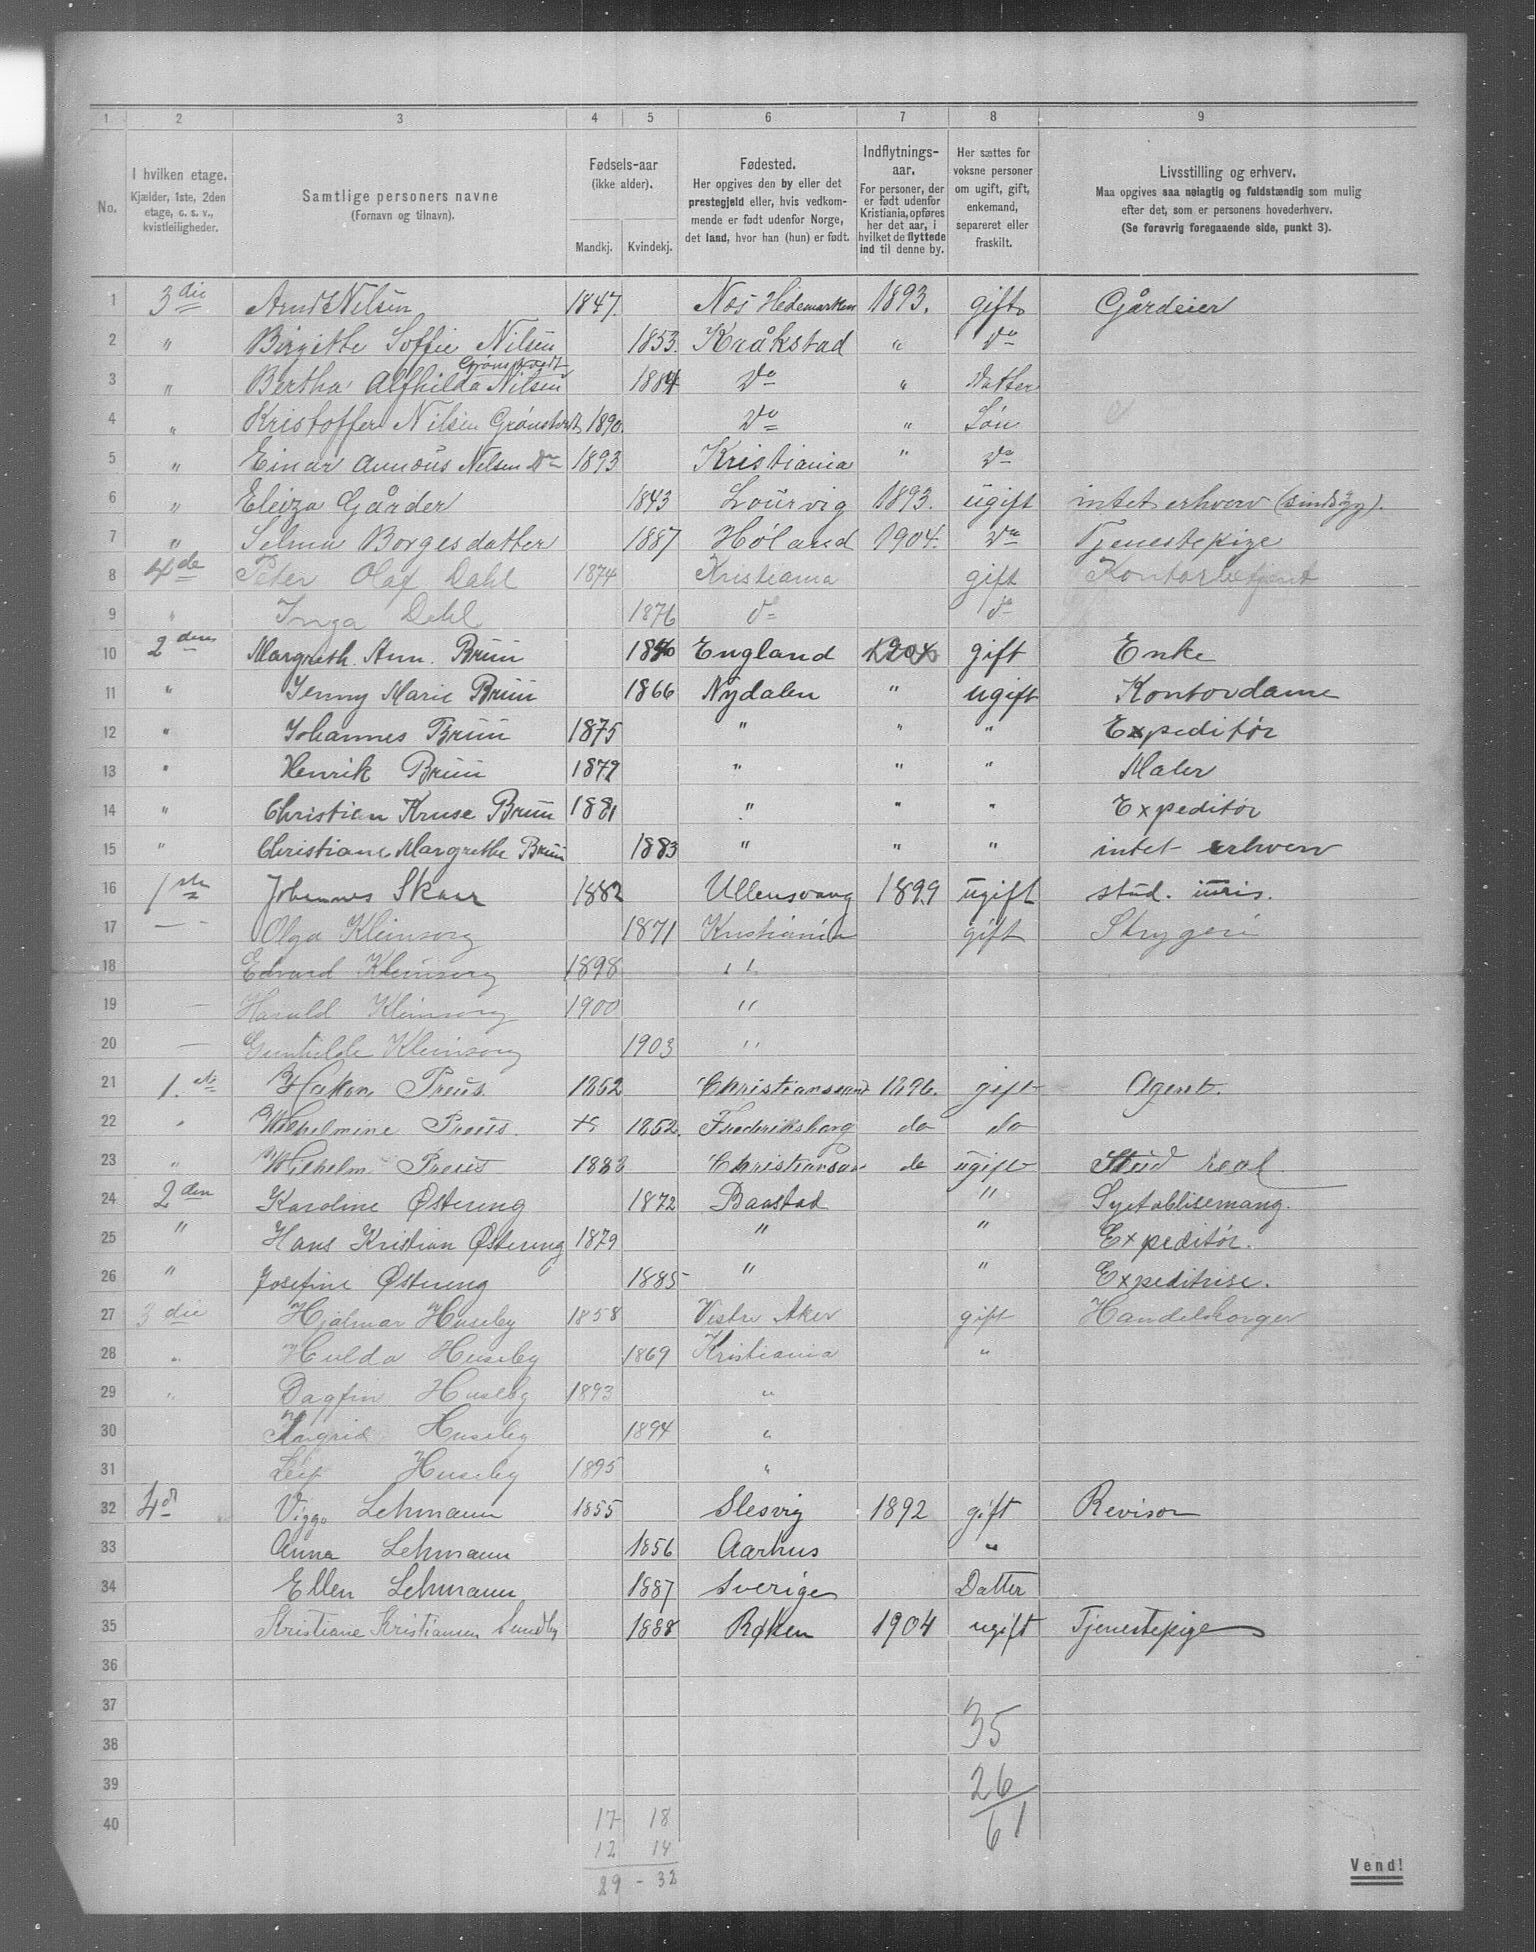 1 2 3 4 5 6 7 8 9
No.
I hvilken etage.
Kjælder, 1ste, 2den
etage, o. s. v.,
kvistleiligheder.
Samtlige personers navne
(Fornavn og tilnavn).
Fødsels-aar
(ikke alder).
Mandkj. Kvindekj.
Fødested.
Her opgives den by eller det
prestegjeld eller, hvis vedkom-
mende er født udenfor Norge,
det land, hvor han (hun) er født.
Indflytnings-
aar.
For personer, der
er født udenfor
Kristiania, opføres
her det aar, i
hvilket de flyttede
ind til denne by.
Her sættes for
voksne personer
om ugift, gift,
enkemand,
separeret eller
fraskilt.
Livsstilling og erhverv.
Maa opgives saa nøiagtig og fuldstændig som mulig
efter det, som er personens hovederhverv.
(Se forøvrig foregaaende side, punkt 3).
1 3die Arndt Nilsen 1847. Nes Hedemarken 1893. gift Gårdeier
2 " Birgitte Soffie Nilsen 1853. Kråkstad " do
Grønstvedt
3 " Bertha Alfhilda Nilsen 1884 Do " Datter
4 " Kristoffer Nilsen Grønstvedt 1890. Do " Søn
5 " Einar Nilsen Do 1893 Kristiania " Do
6 " Eleiza Gårder 1843 Lourvig 1893. ugift intet erhverv (sindsyg).
7 " Selma Borgesdatter 1887 Høland 1904. Do Tjenestepige
8 4de Peter Olaf Dahl 1874 Kristiania gift Kontorbetjent
9 " Inga Dahl 1876 do do
10 2den Margreth. Ann. Bruun England gift Enke
11 " Jenny Marie Bruun 1866 Nydalen " ugift Kontordame
12 " Johannes Bruun 1875 " " " Expeditør
13 " Henrik Bruun 1879 " " " Maler
14 " Christian Kruse Bruun 1881 " " " Expeditør
15 " Christiane Margrethe Bruun 1883 " " " intet erhverv
16 1ste Johannes Skaar 1882 Ullensvang 1899 ugift stud. iuris.
17 — Olga Kleinsorg 1871 Kristiania gift Strygeri
18 Edvard Kleinsorg 1898 "
19 — Harald Kleinsorg 1900 "
20 — Gunhilde Kleinsorg 1903 "
21 1.ste Håkon Preus. 1862 Christianssund 1896. gift Agent.
22 " Wilhelmine Preus. 1862. Frederikshavn do do
23 " Wilhelm Preus 1883 Christianssund do ugift Stud real
24 2den Karoline Østereng 1872 Baastad " Syetablisemang.
25 " Hans Kristian Østereng 1879 " " Expeditør.
26 " Josefine Østereng 1885 " " Expeditrise.
27 3die Hjalmar Huseby 1858 Vestre Aker gift Handelsborger
28 " Hulda Huseby 1869 Kristiania "
29 " Dagfin Huseby 1893 "
30 Ingrid Huseby 1894 "
31 Leif Huseby 1895 "
32 4d Viggo Lehmann 1855 Slesvig 1892 gift Revisor
33 Anna Lehmann 1856 Aarhus "
34 Ellen Lehmann 1887 Sverige Datter
35 Kristiane Kristiansen Sundby 1888 Røken 1904 ugift Tjenestepige
36
37 35
38
39 26
40 17 18 61
12 14
29 - 32
Vend!